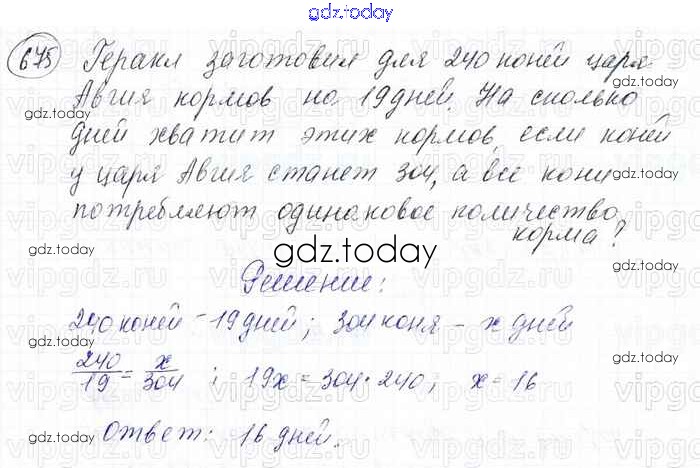 gdz.today
675 Геракл заготовил для 240 коней царя
Авгия кормов на 19 дней. На сколько
дней хватит этих кормов, если коней
у царя Авгия станет 304, а все кони
потребляют одинаковое количество
корма?
gdz.today
Решение:
240 коней - 19 дней; 304 коня - x дней
240/19 = x/304 ; 19x = 304 · 240; x = 16
Ответ: 16 дней.
gdz.today
gdz.today
gdz.today
gdz.today
gdz.today
gdz.today
gdz.today
gdz.today
gdz.today
gdz.today